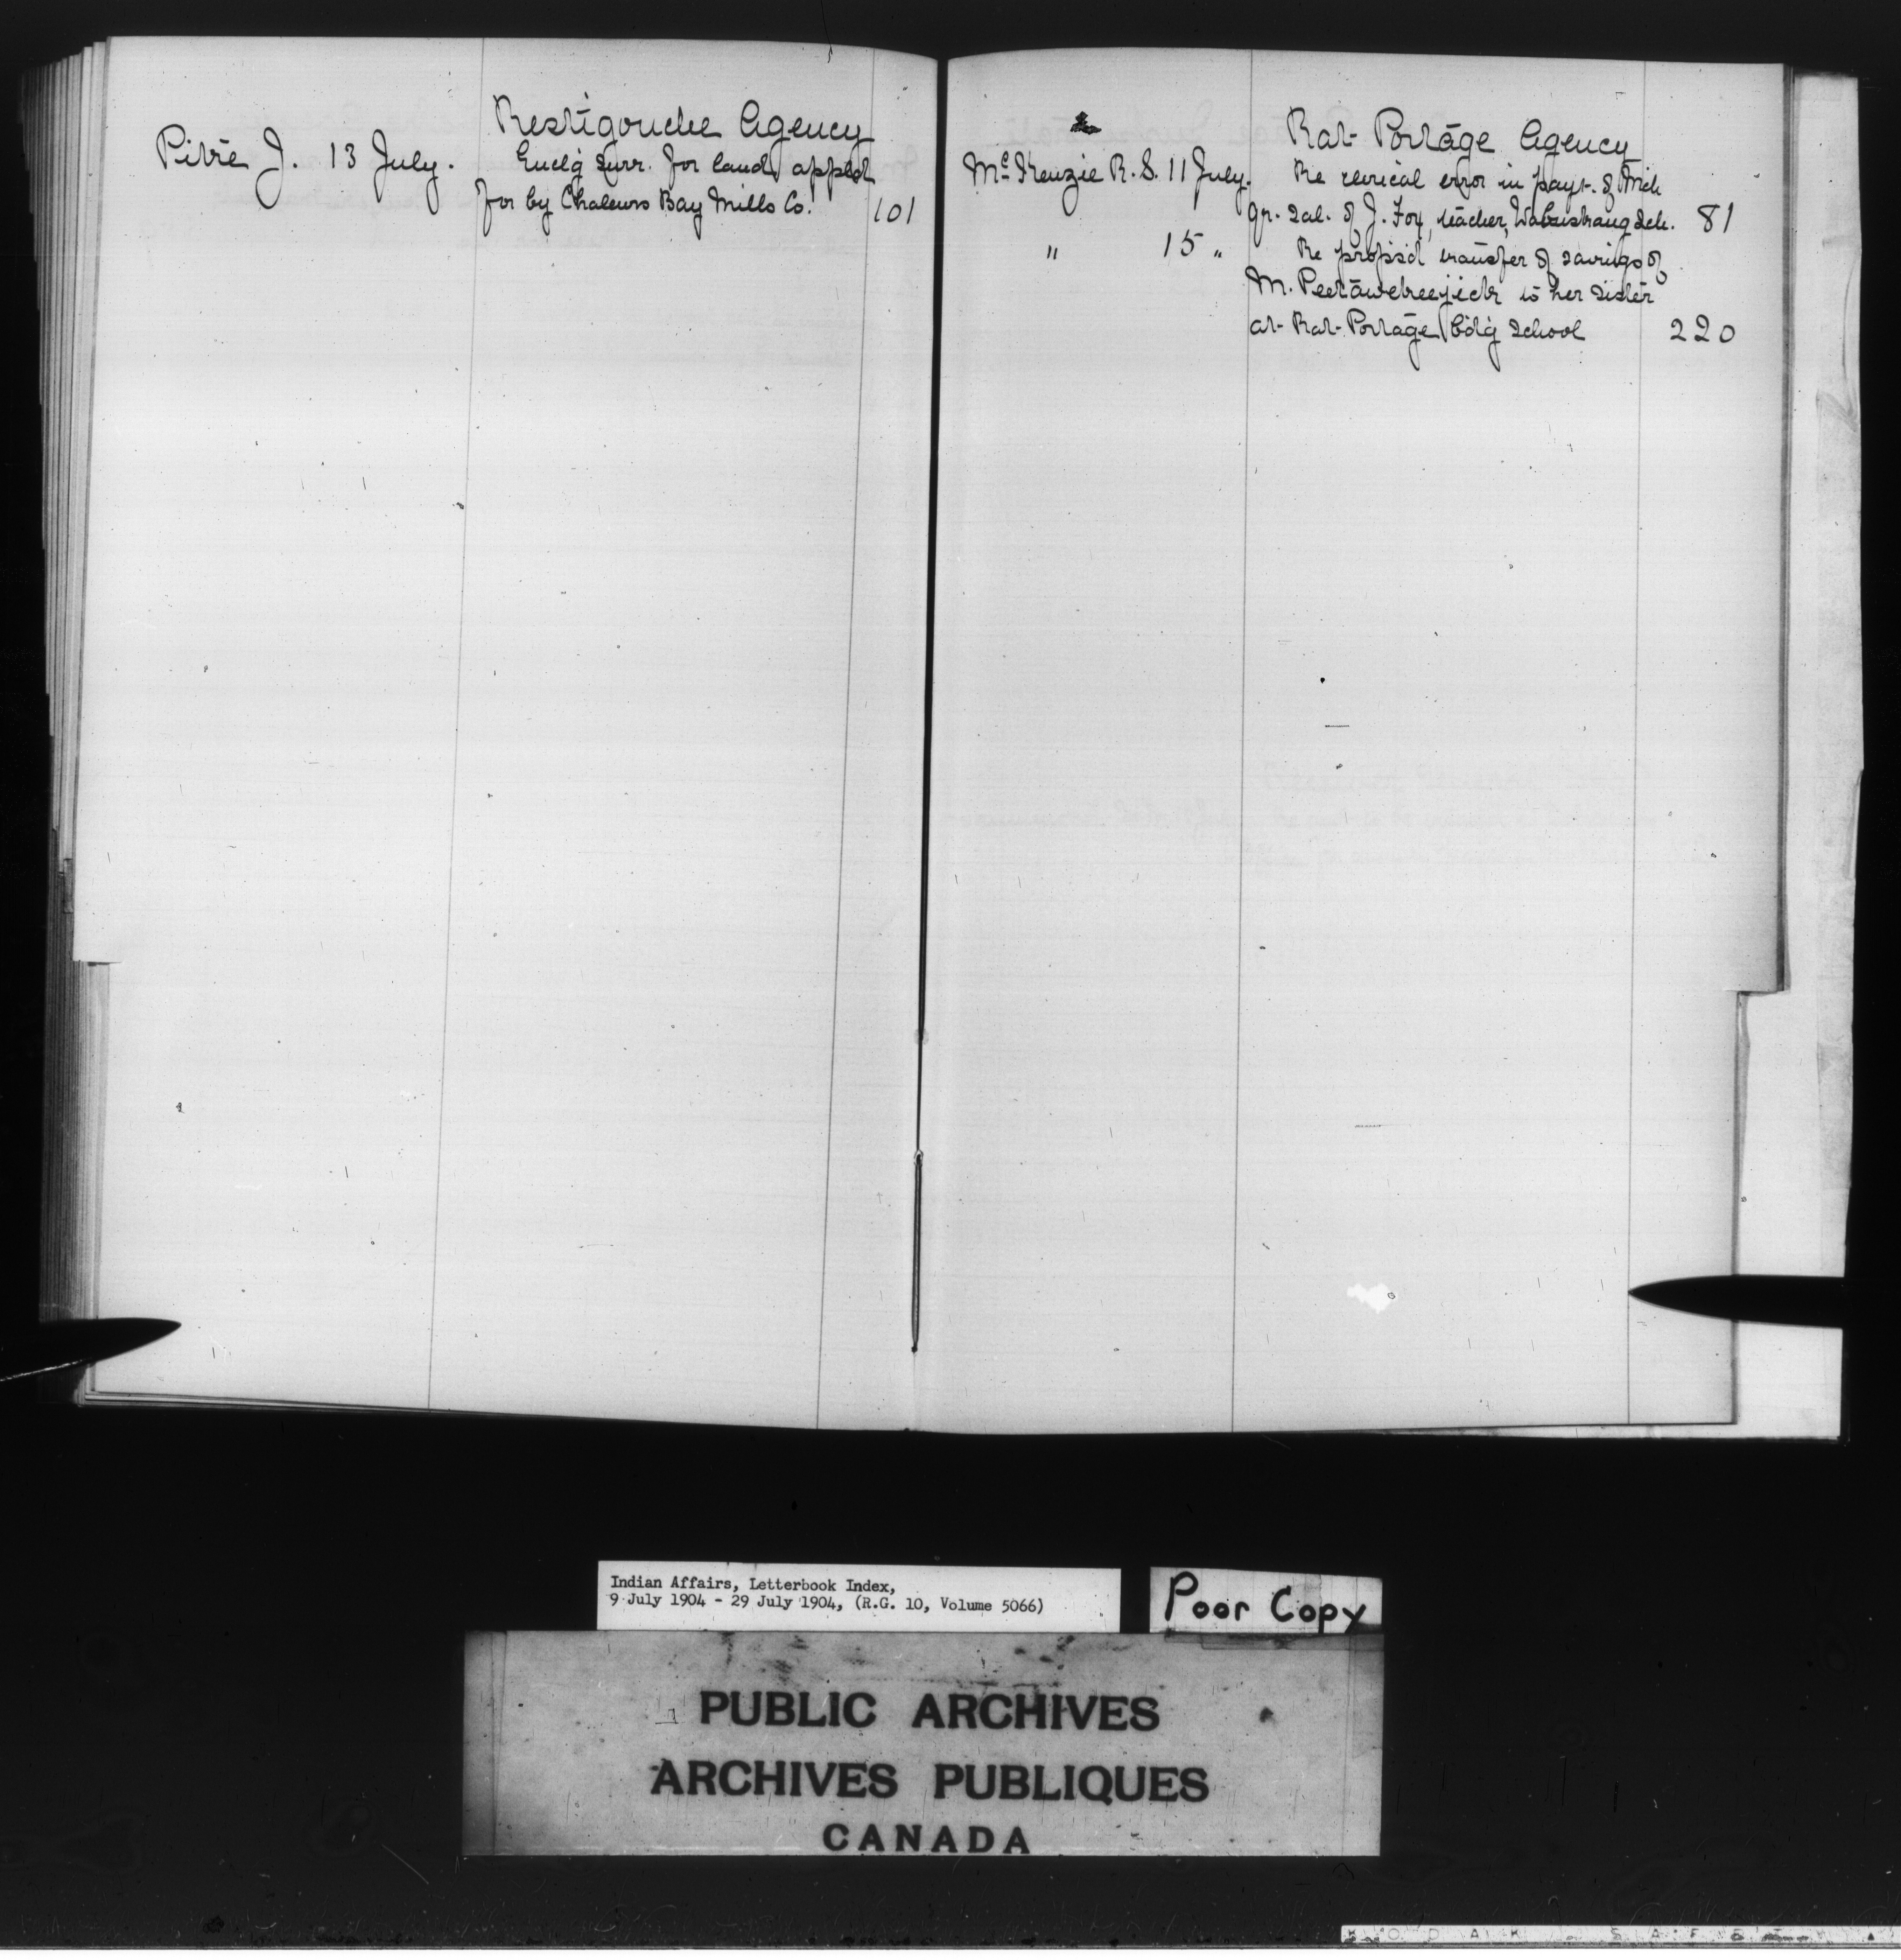 Restigouche Agency
Pitre J. 13 July. Enclg surr. for land applid
for by Chaleurs Bay Mills Co. 101
Rat Portage Agency
McKenzie R. S. 11 July. Re clerical error in payt. of Mch
qr. sal. of J. Fox, teacher, Wabuskang Sch. 81
" 15 " Re propsd transfer of savings of
M. Peetawekeejick to her sister
at Rat Portage Bdg School 220
Indian Affairs, Letterbook Index,
9 July 1904 - 29 July 1904, (R.G. 10, Volume 5066)
Poor Copy
PUBLIC ARCHIVES
ARCHIVES PUBLIQUES
CANADA
KODAK SAFETY